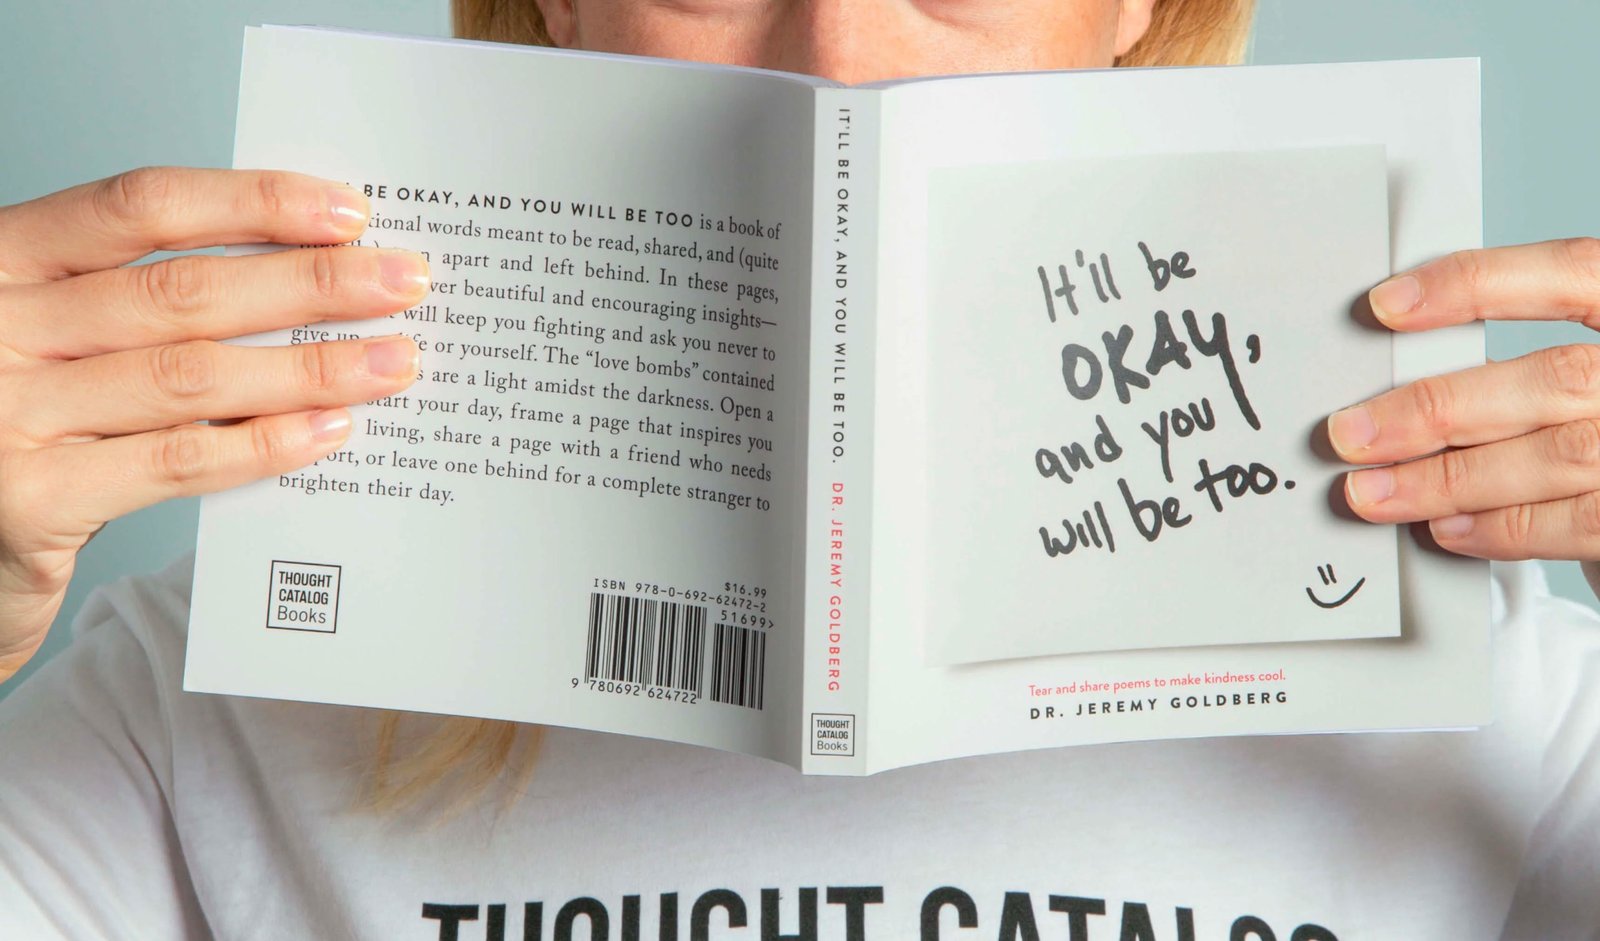 BE OKAY, AND YOU WILL BE TOO is a book of
words meant to be read, shared, and (quite
apart and left behind. In these pages,
beautiful and encouraging insights—
will keep you fighting and ask you never to
give up or yourself. The “love bombs” contained
are a light amidst the darkness. Open a
start your day, frame a page that inspires you
living, share a page with a friend who needs
or leave one behind for a complete stranger to
brighten their day.
THOUGHT
CATALOG
Books
$16.99
ISBN 978-0-692-62472-2
51699>
9 780692 624722
IT'LL BE OKAY, AND YOU WILL BE TOO. DR. JEREMY GOLDBERG
THOUGHT
CATALOG
Books
It'll be
OKAY,
and you
will be too.
Tear and share poems to make kindness cool.
DR. JEREMY GOLDBERG
THOUGHT CATALOG